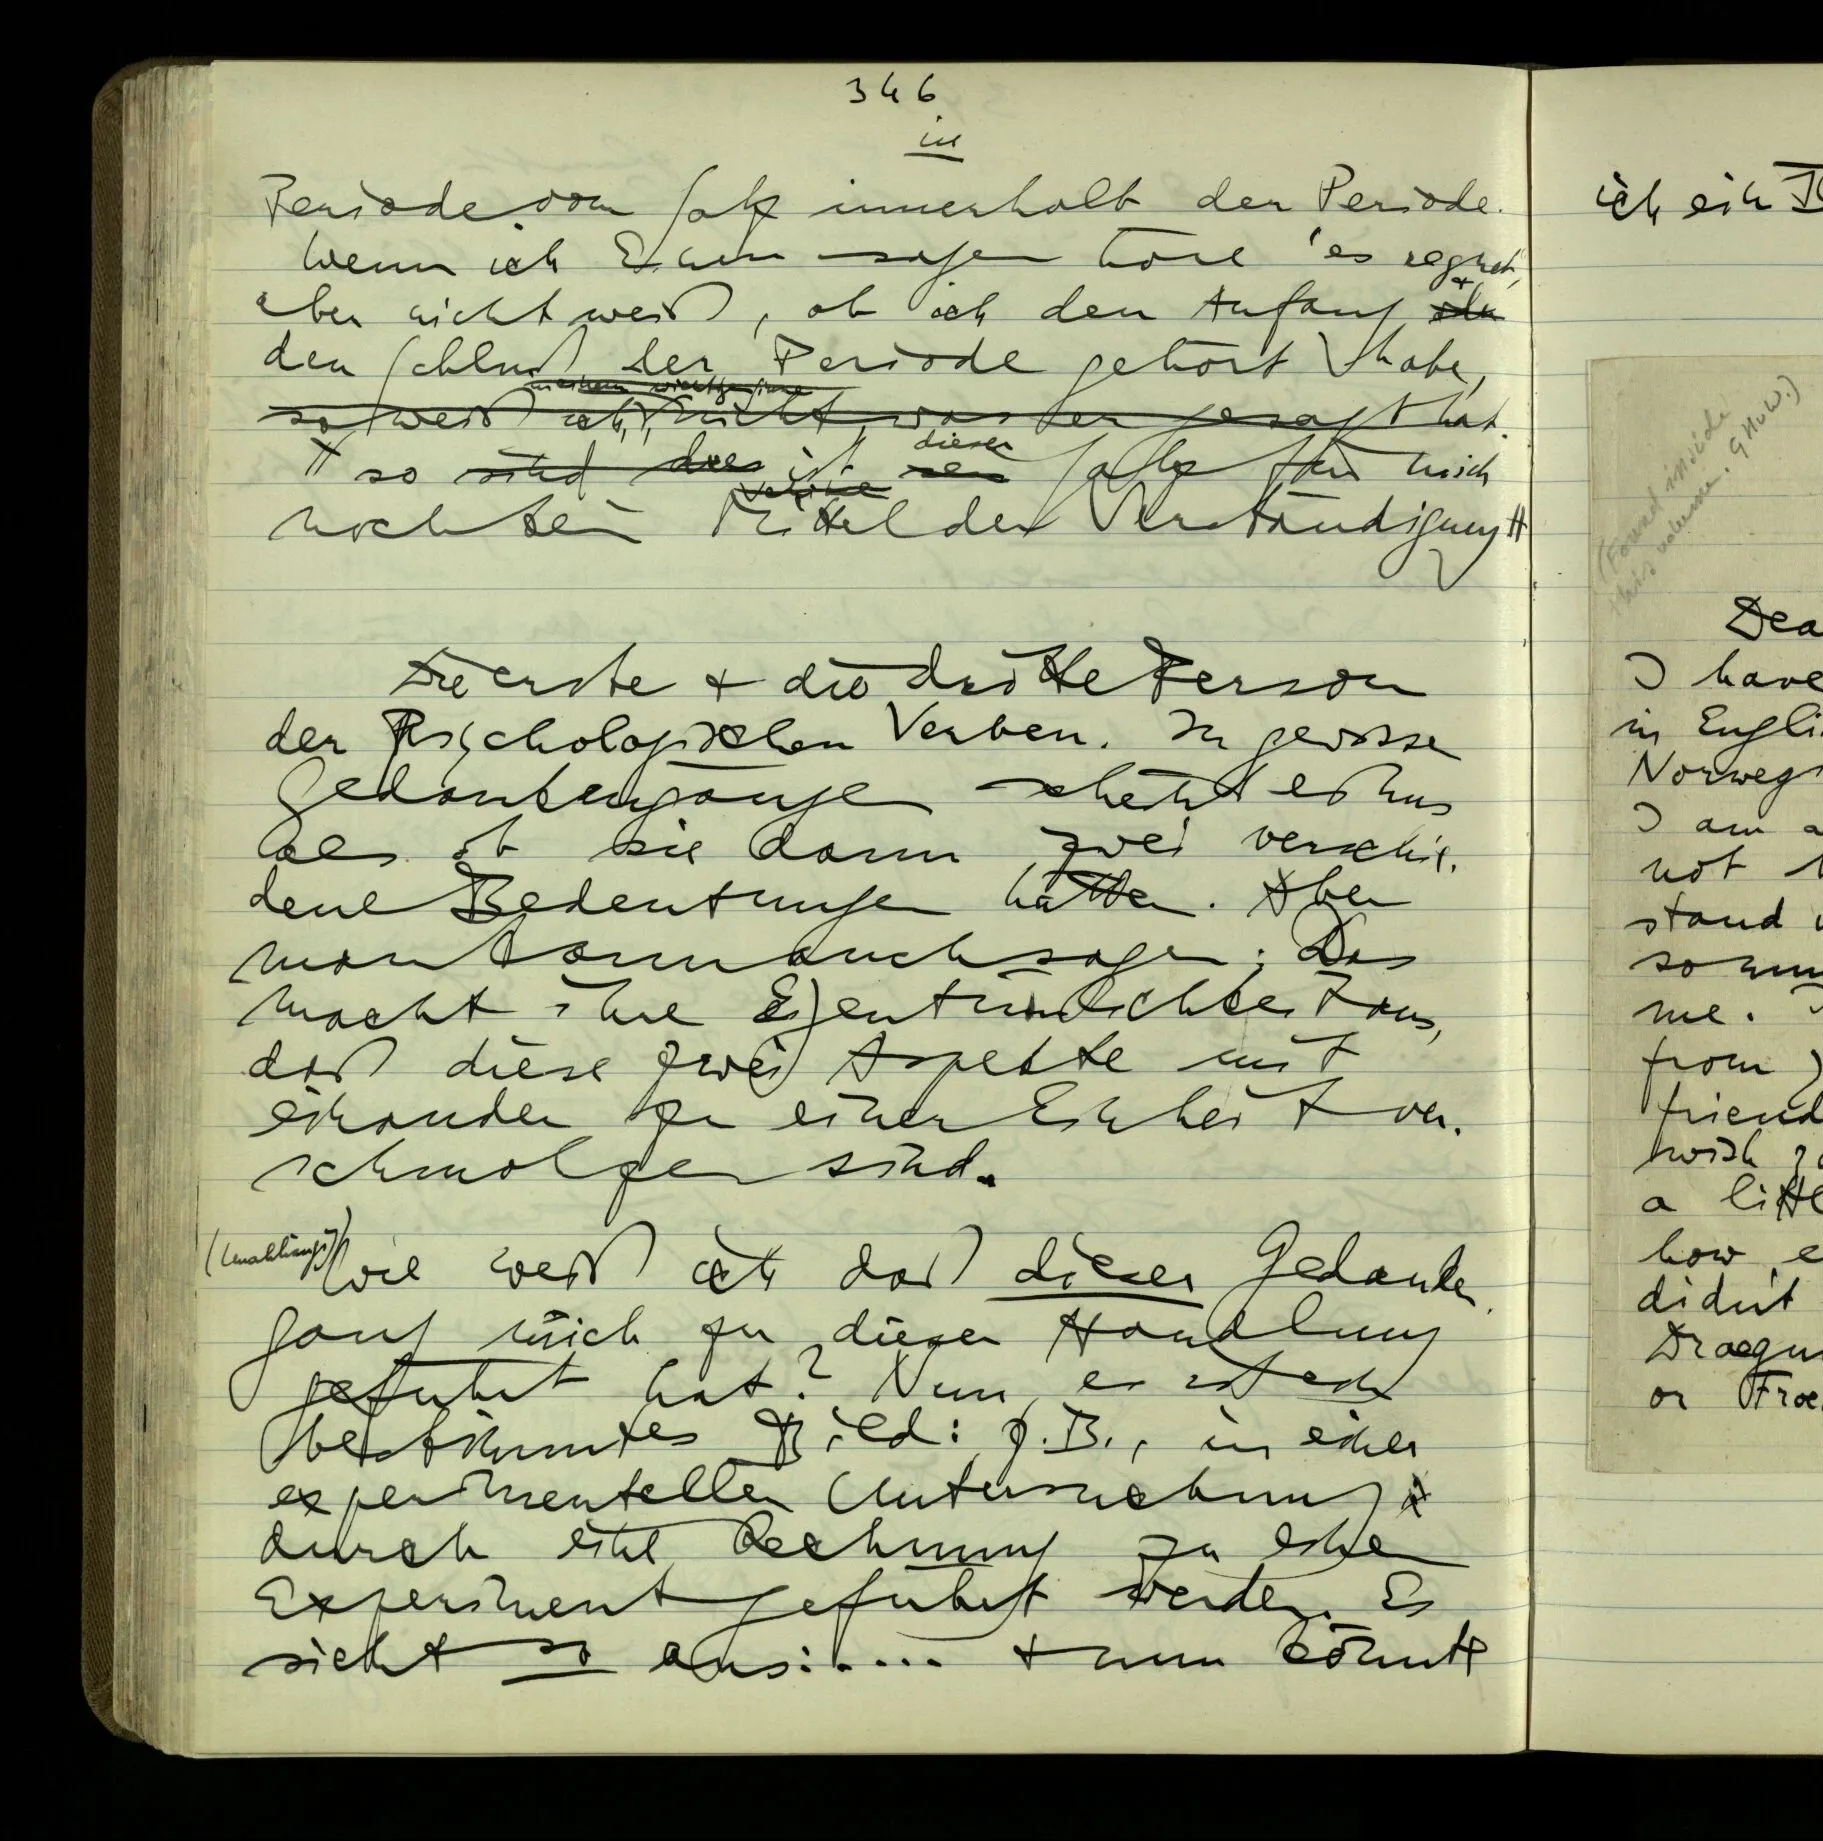 346
in
Periode vom Satz innerhalb der Periode.
Wenn ich Einen sagen höre 'es regnet',
aber nicht weiß, ob ich den Anfang +
den Schluß der Periode gehört habe,
so weiß ich nicht, was er gesagt hat.
so sind das ist dieser Satz für mich
noch kein Mittel der Verständigung
Die erste + die dritte Person
der Psychologischen Verben. In gewissen
Gedankengängen scheint es uns
als ob sie dann zwei verschie-
dene Bedeutungen hätten. Aber
man kann auch sagen: Das
macht ihre Eigentümlichkeit aus,
daß diese zwei Aspekte mit
einander zu einer Einheit ver-
schmolzen sind.
Wie weiß ich daß dieser Gedanken-
gang mich zu dieser Handlung
geführt hat? Nun, es ist ein
bestimmtes Bild: z.B., in einer
experimentellen Untersuchung
durch eine Rechnung zu einem
Experiment geführt werden. Es
sieht so aus: .... + nun könnte
ich ein
(Found inside
this volume. GHvW.)
Dea
I have
in Engli
Norweg
I am a
not
stand
so
me.
from
friend
wish
a litt
how e
didn't
Draegn
or Froe